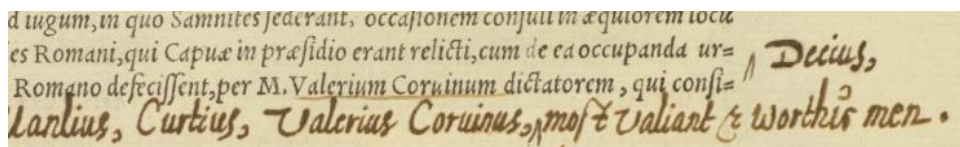 d iugum, in quo Samnites ſederant, occaſionem conſuli in æquiorem locū
es Romani, qui Capuæ in præſidio erant relicti, cum de ea occupanda ur=
Romano defeciſſent, per M. Valerium Coruinum dictatorem, qui conſi=
Decius,
Manlius, Curtius, Valerius Coruinus, moſt valiant & worthie men.